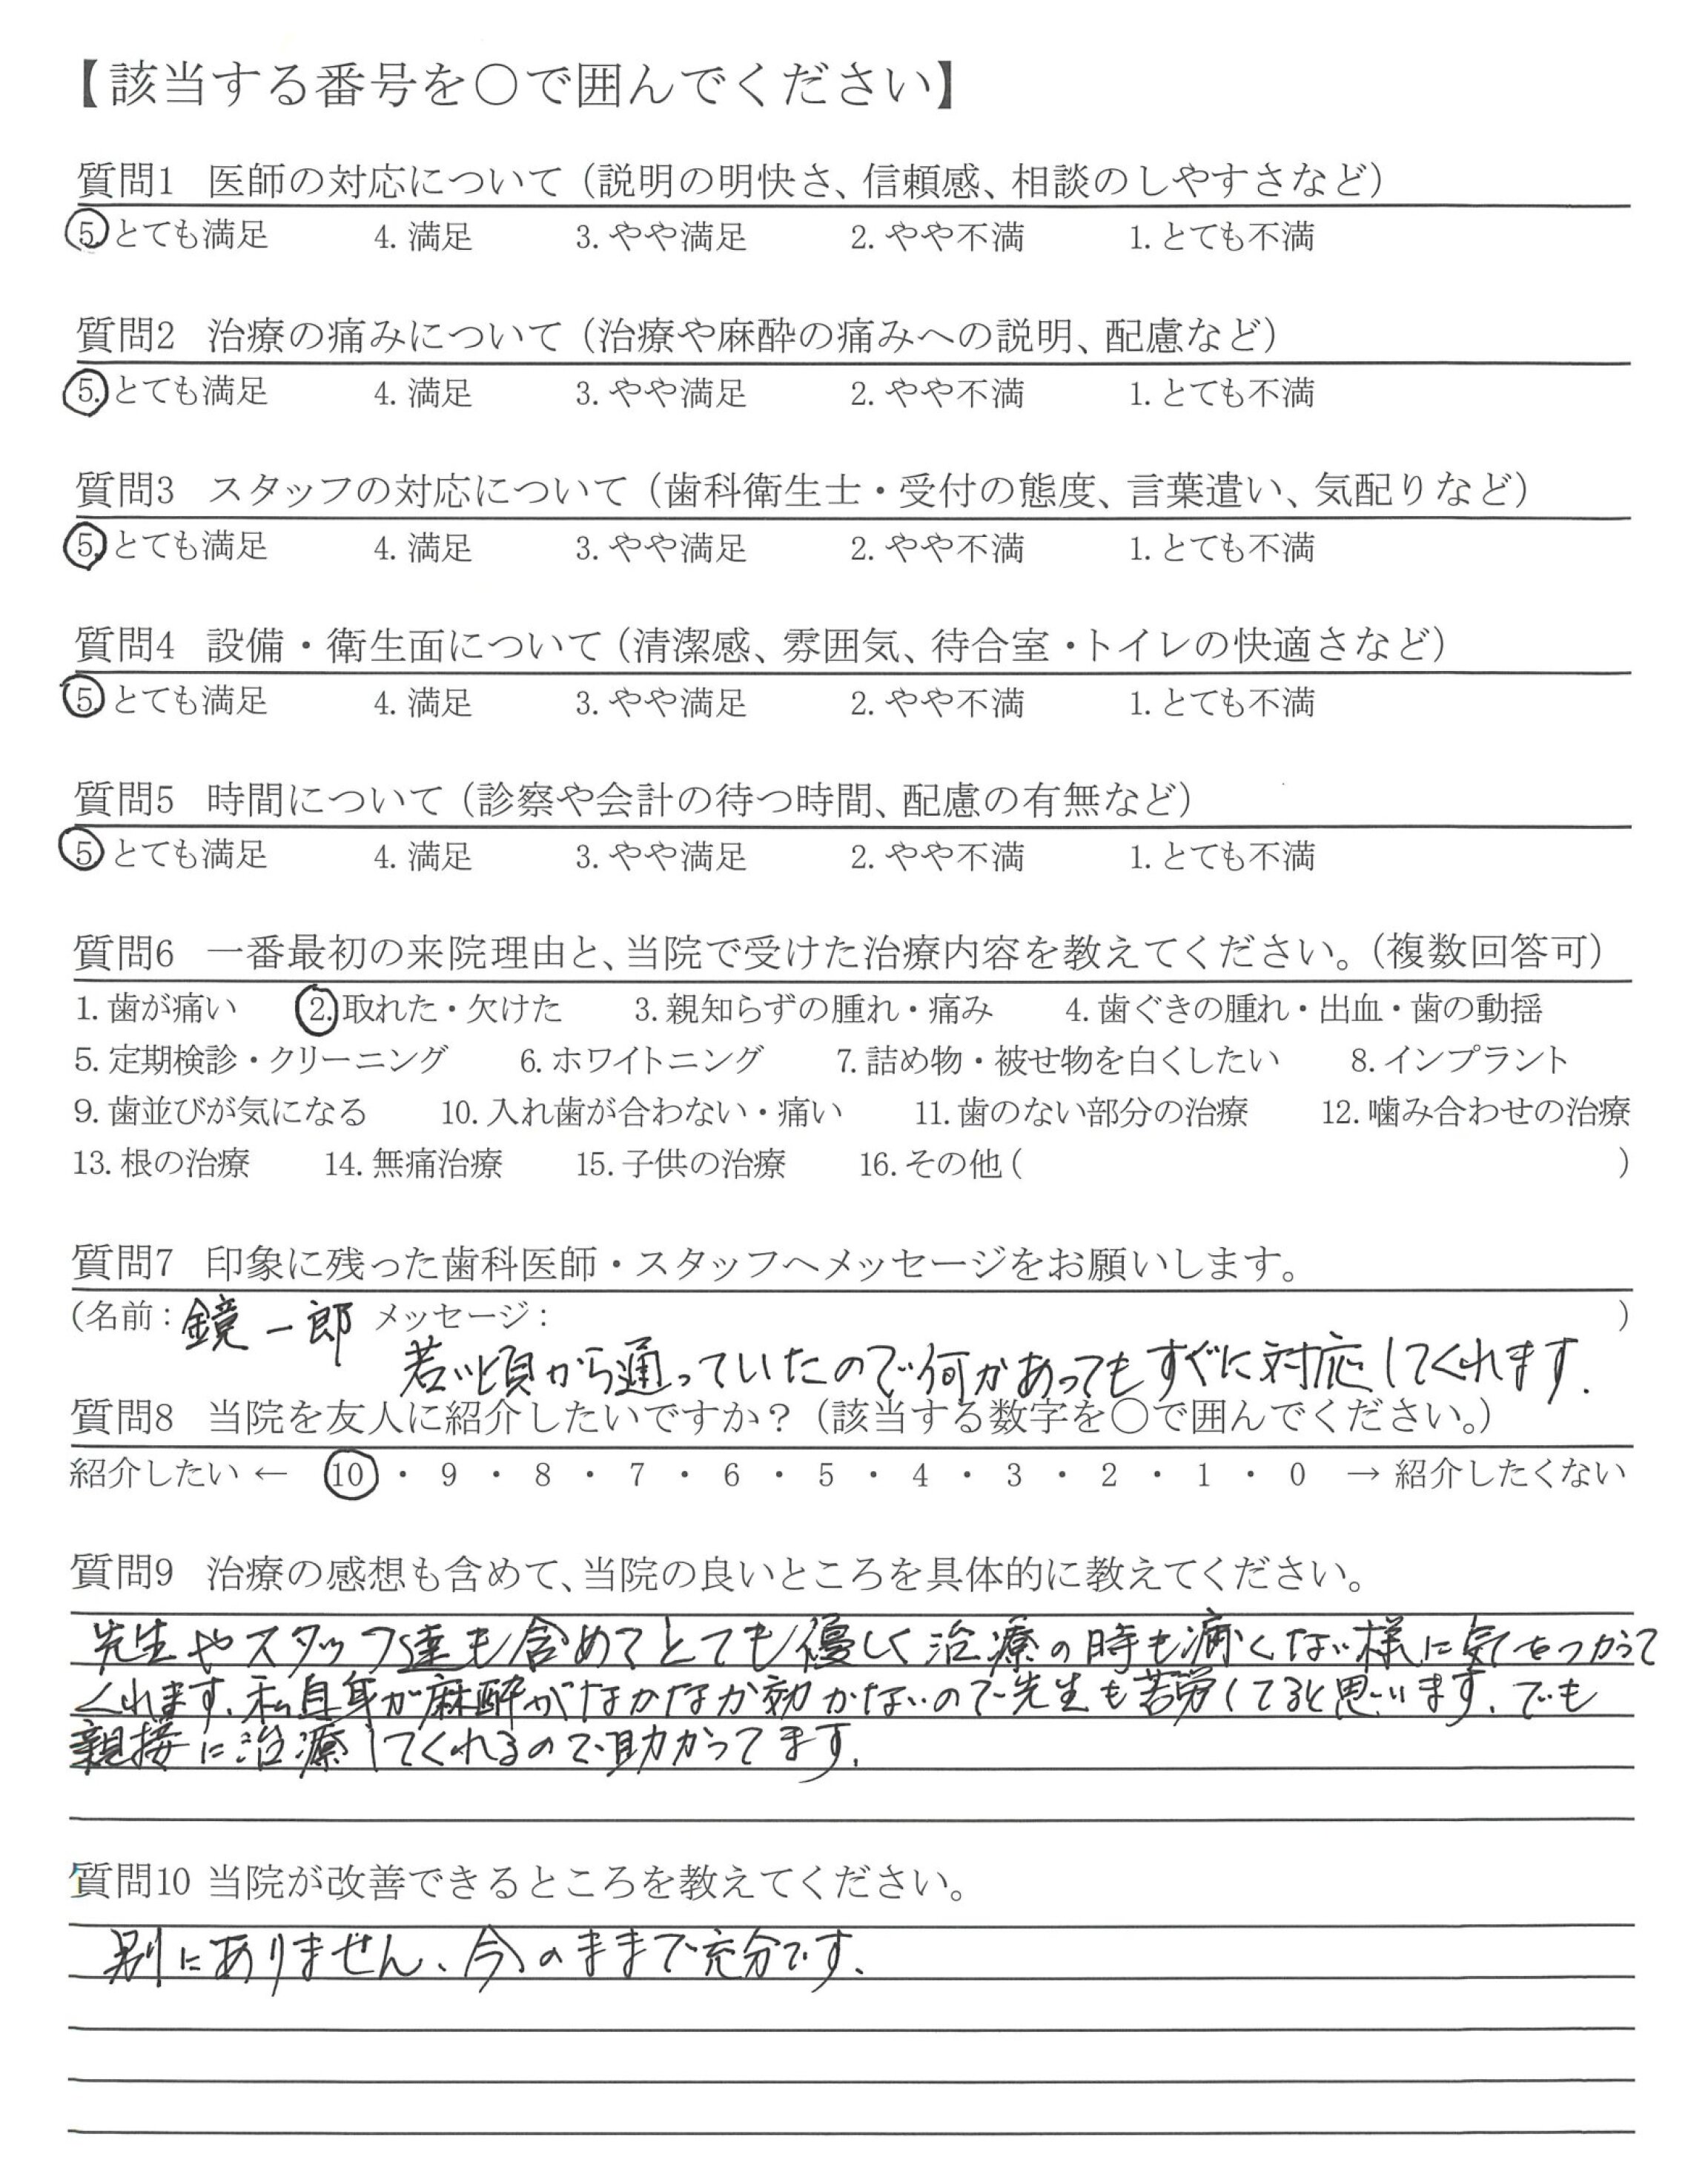 【該当する番号を○で囲んでください】
質問1 医師の対応について（説明の明快さ、信頼感、相談のしやすさなど）
5.とても満足 4.満足 3.やや満足 2.やや不満 1.とても不満
質問2 治療の痛みについて（治療や麻酔の痛みへの説明、配慮など）
5.とても満足 4.満足 3.やや満足 2.やや不満 1.とても不満
質問3 スタッフの対応について（歯科衛生士・受付の態度、言葉遣い、気配りなど）
5.とても満足 4.満足 3.やや満足 2.やや不満 1.とても不満
質問4 設備・衛生面について（清潔感、雰囲気、待合室・トイレの快適さなど）
5.とても満足 4.満足 3.やや満足 2.やや不満 1.とても不満
質問5 時間について（診察や会計の待つ時間、配慮の有無など）
5.とても満足 4.満足 3.やや満足 2.やや不満 1.とても不満
質問6 一番最初の来院理由と、当院で受けた治療内容を教えてください。（複数回答可）
1.歯が痛い 2.取れた・欠けた 3.親知らずの腫れ・痛み 4.歯ぐきの腫れ・出血・歯の動揺
5.定期検診・クリーニング 6.ホワイトニング 7.詰め物・被せ物を白くしたい 8.インプラント
9.歯並びが気になる 10.入れ歯が合わない・痛い 11.歯のない部分の治療 12.噛み合わせの治療
13.根の治療 14.無痛治療 15.子供の治療 16.その他（ ）
質問7 印象に残った歯科医師・スタッフへメッセージをお願いします。
（名前：鏡一郎 メッセージ： ）
若い頃から通っていたので何かあってもすぐに対応してくれます.
質問8 当院を友人に紹介したいですか？（該当する数字を○で囲んでください。）
紹介したい ← 10・9・8・7・6・5・4・3・2・1・0 → 紹介したくない
質問9 治療の感想も含めて、当院の良いところを具体的に教えてください。
先生やスタッフ達も含めてとても優しく治療の時も痛くない様に気をつかって
くれます.私自身が麻酔がなかなか効かないので先生も苦労してると思います.でも
親接に治療してくれるので助かってます.
質問10 当院が改善できるところを教えてください。
別にありません、今のままで充分です.